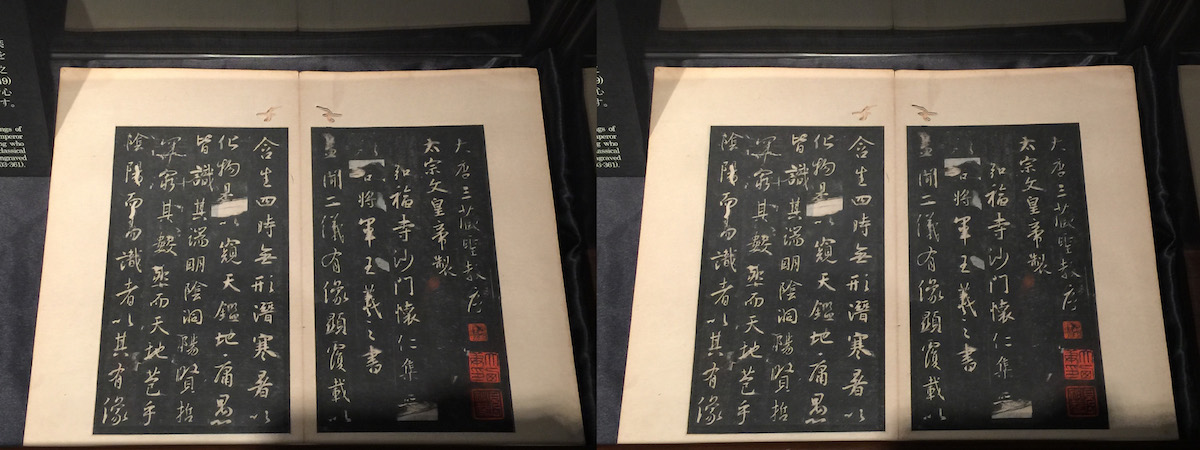 大唐三藏聖教序
太宗文皇帝製
弘福寺沙門懷仁集
將軍王羲之書
聞二儀有像顯覆載以
含生四時無形潛寒暑以
化物是以窺天鑑地庸愚
皆識其端明陰洞陽賢哲
窮其數然而天地苞乎
陰陽而易識者以其有像
ngs of
mperor
ng who
classical
ngraved
03-361).
大唐三藏聖教序
太宗文皇帝製
弘福寺沙門懷仁集
將軍王羲之書
聞二儀有像顯覆載以
含生四時無形潛寒暑以
化物是以窺天鑑地庸愚
皆識其端明陰洞陽賢哲
窮其數然而天地苞乎
陰陽而易識者以其有像